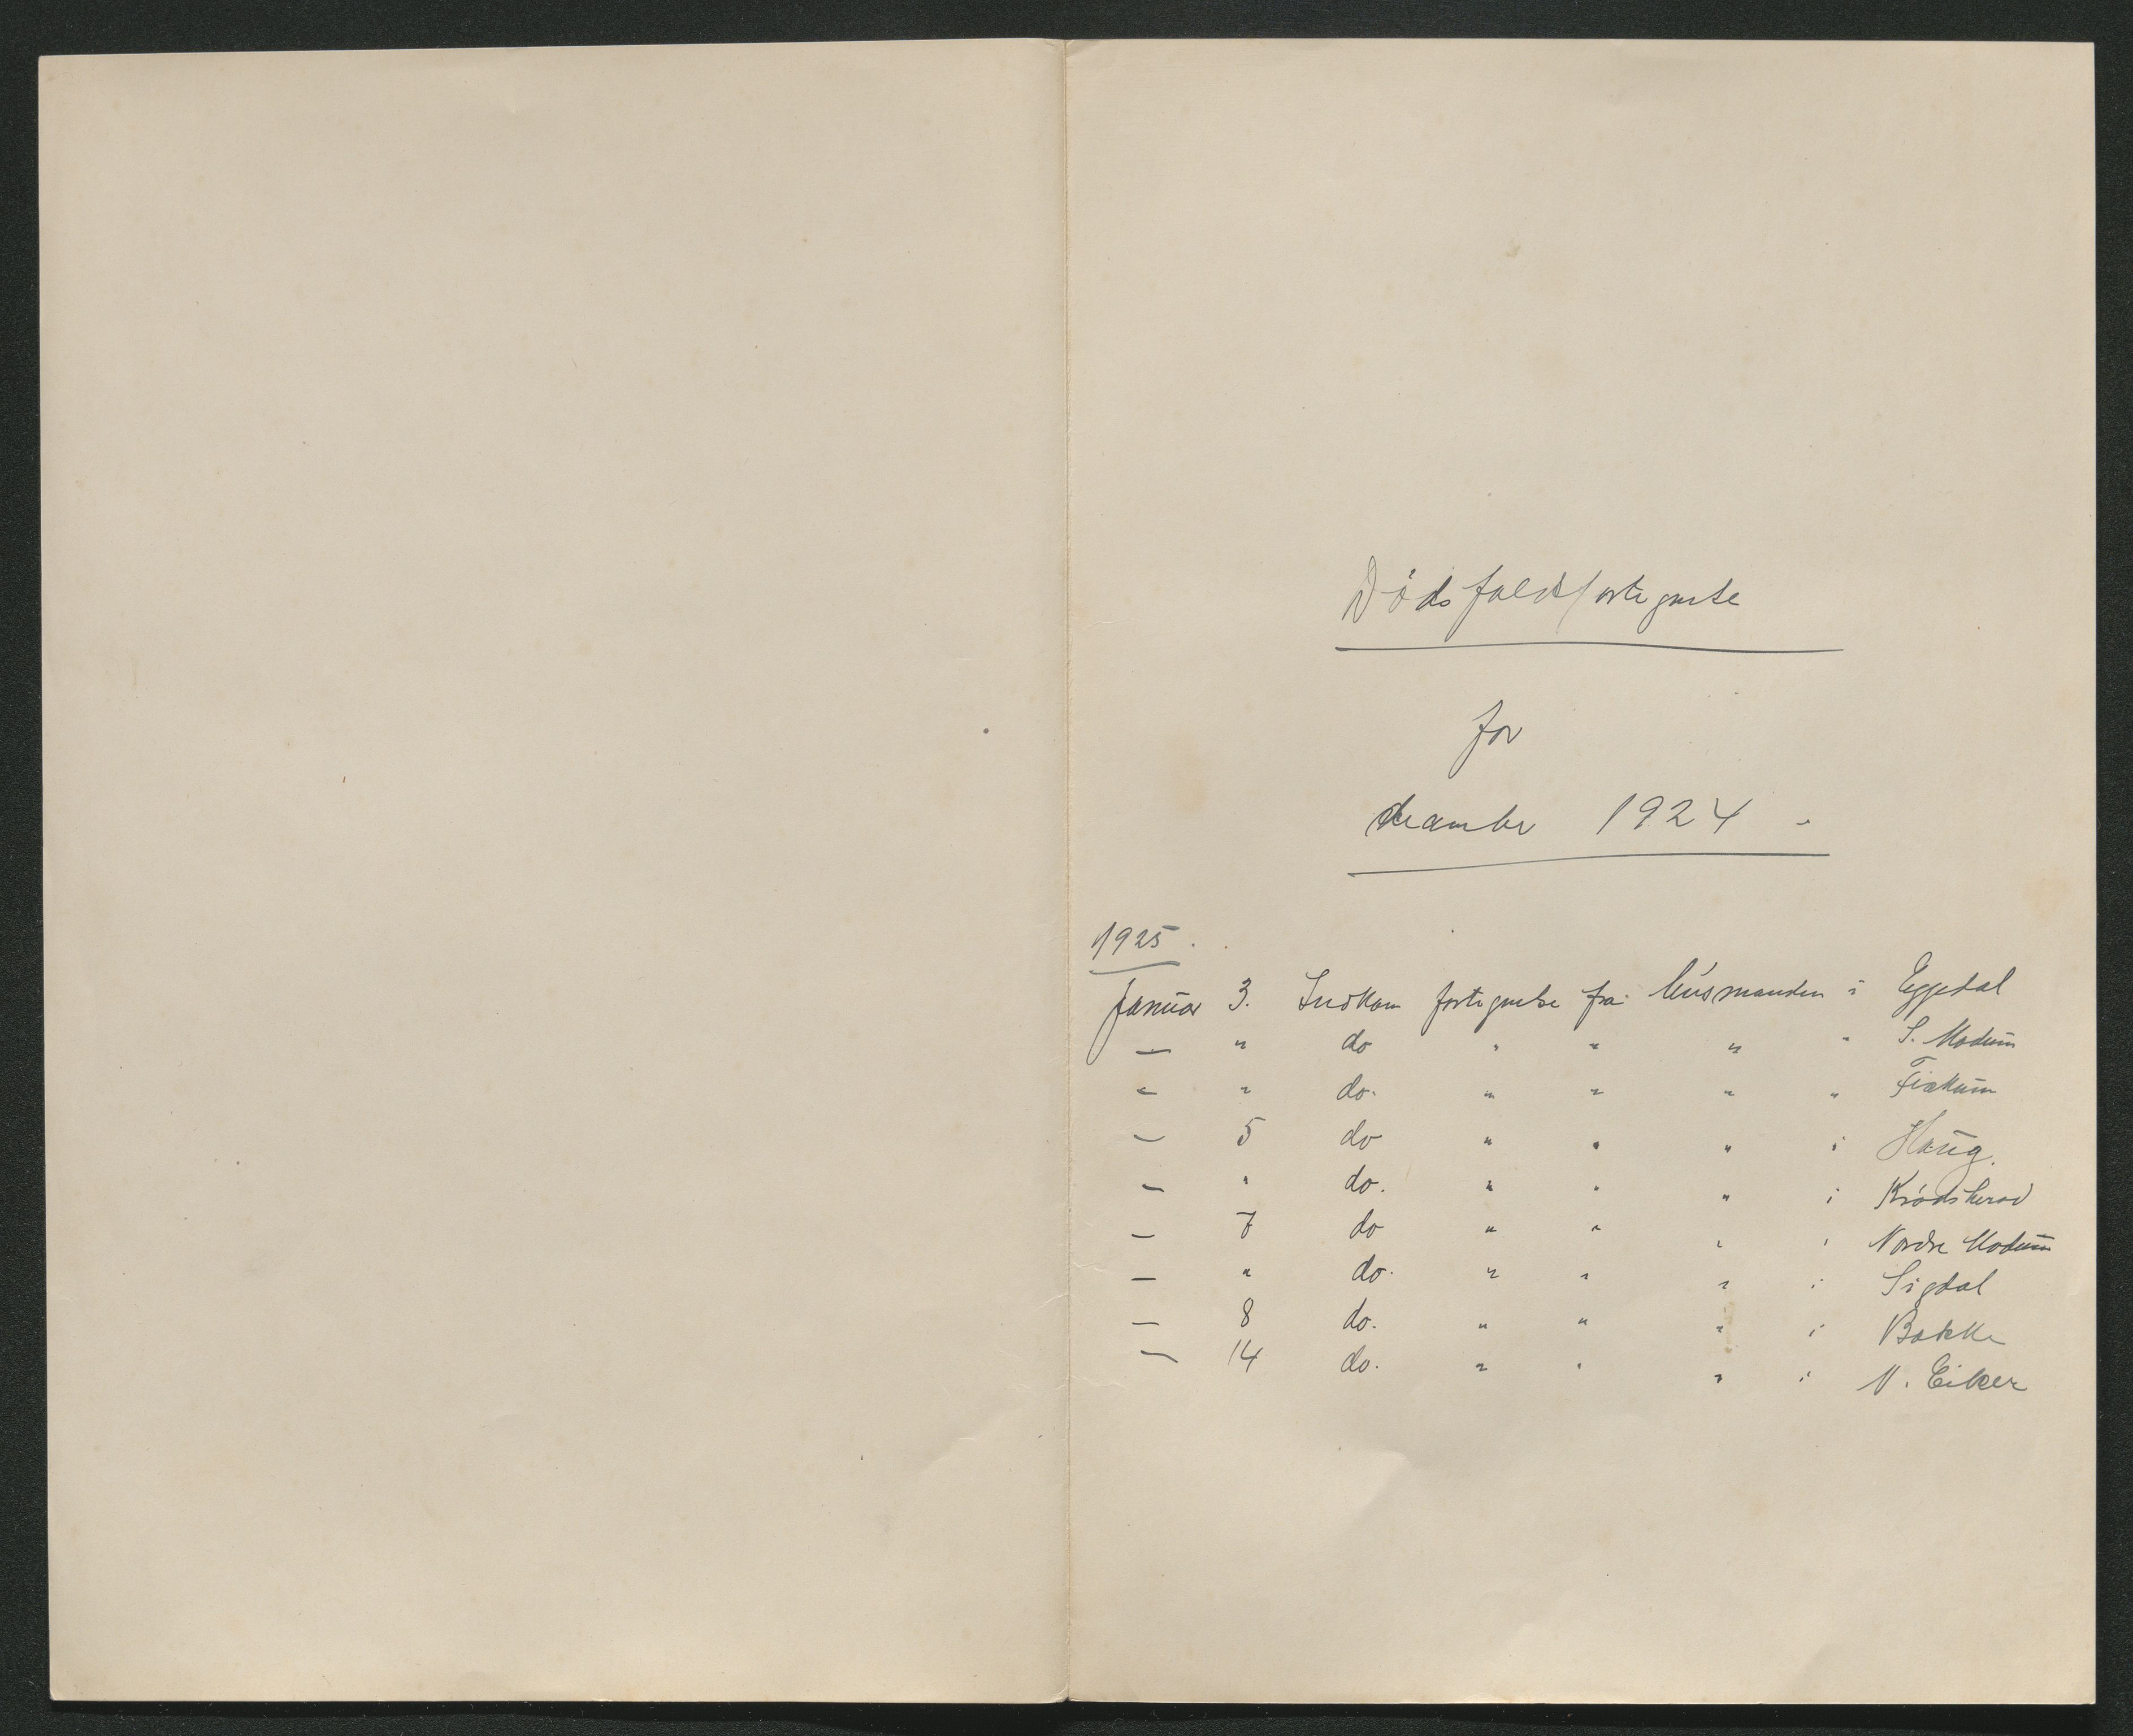 Dødsfaldsfortegnelse
for
december 1924 -
1925.
Januar 3. Indkom fortegnelse fra lensmanden i Eggedal
— " do " " " " S. Modum
— " do. " " " " Fiskum
— 5 do " " " i Haug.
— " do. " " " i Krødsherad
— 7 do " " " i Nordre Modum
— " do. " " " i Sigdal
— 8 do. " " " i Bakke
— 14 do. " " " i N. Eiker